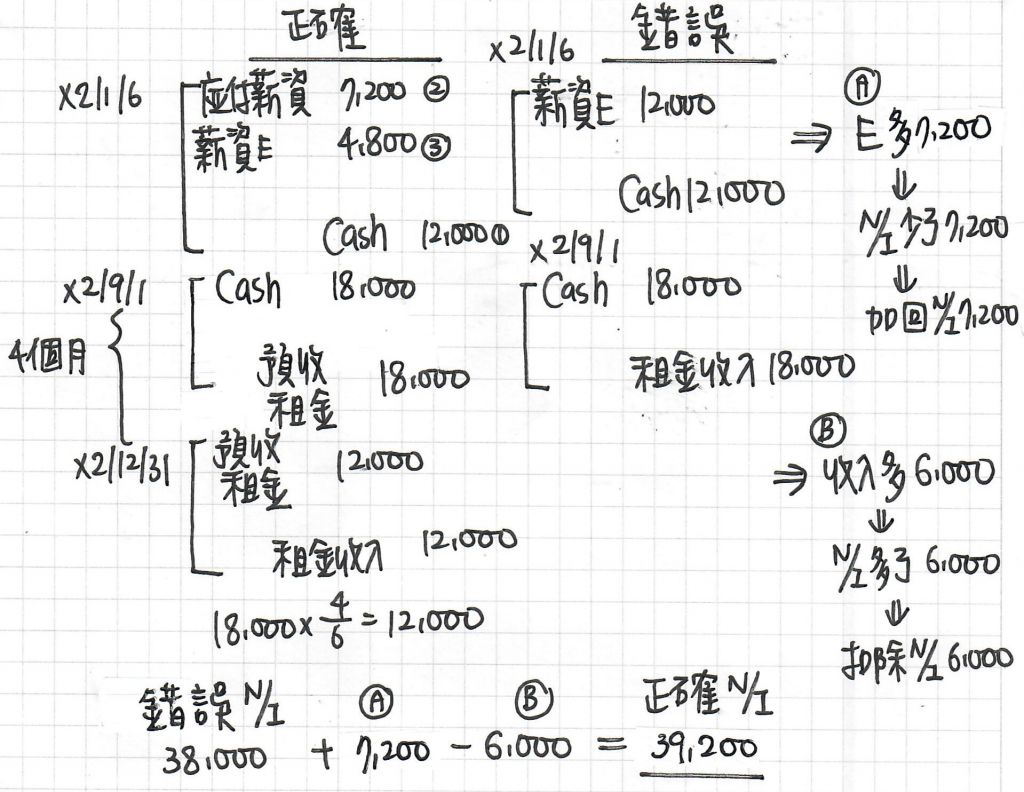 正確
x2/1/6 錯誤
x2/1/6
應付薪資 7,200 ②
薪資E 4,800 ③
Cash 12,000 ①
薪資E 12,000
Cash 12,000
Ⓐ
⇒ E多7,200
⇓
N/I少了7,200
⇓
加回N/I 7,200
x2/9/1
Cash 18,000
預收
租金 18,000
x2/9/1
Cash 18,000
租金收入 18,000
4個月
x2/12/31
預收
租金 12,000
租金收入 12,000
18,000 x 4/6 = 12,000
Ⓑ
⇒ 收入多 6,000
⇓
N/I多了 6,000
⇓
扣除N/I 6,000
錯誤N/I Ⓐ Ⓑ 正確N/I
38,000 + 7,200 - 6,000 = 39,200